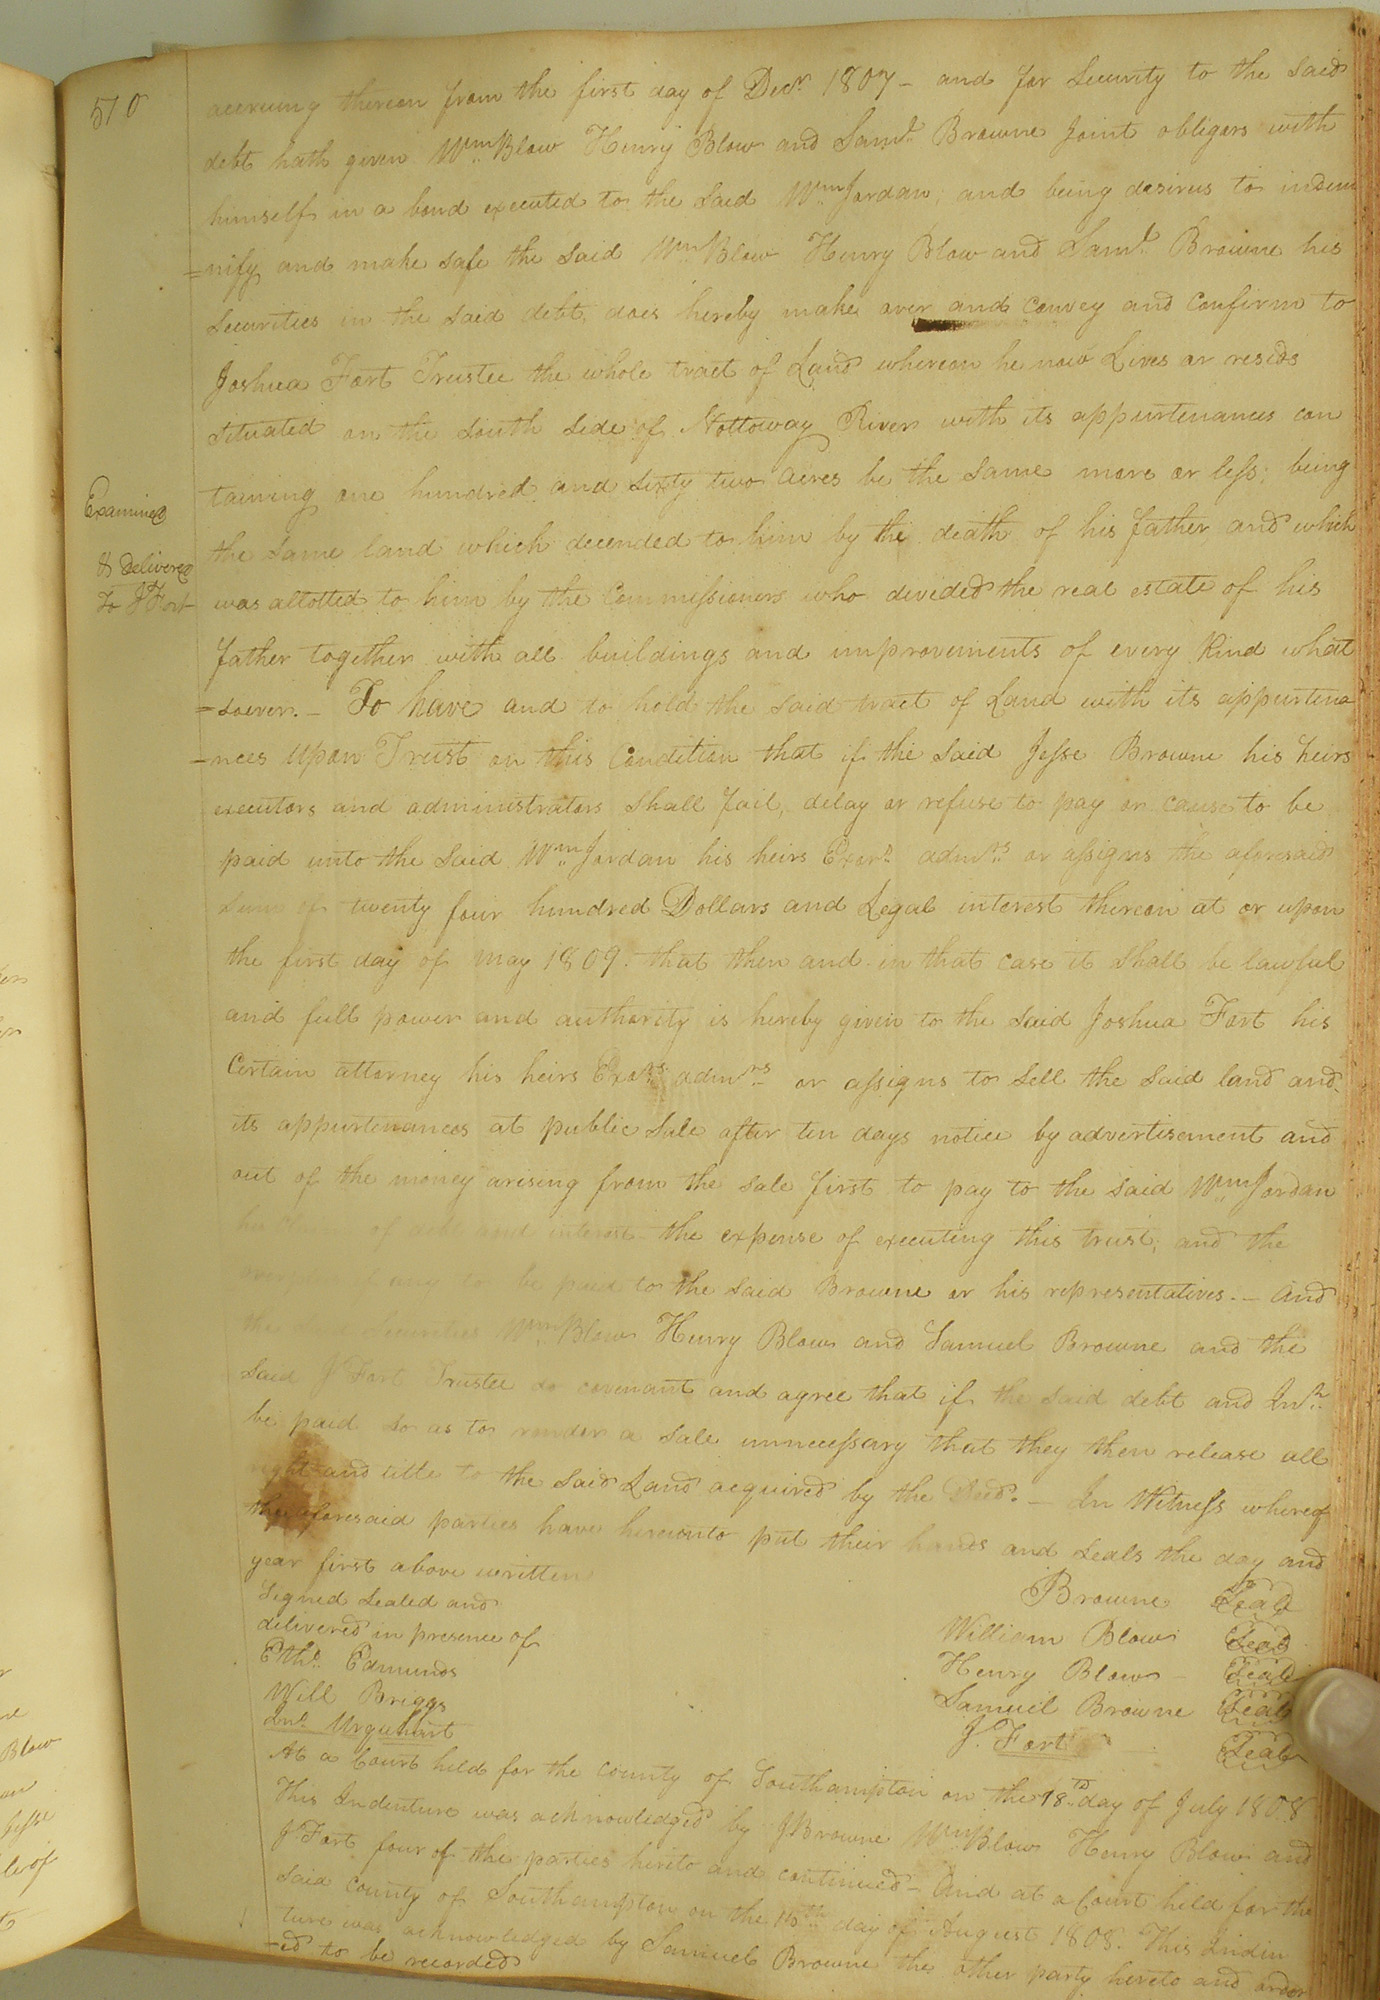 510
accruing thereon from the first day of Decr. 1807 - and for Security to the said
debt hath given Wm. Blow Henry Blow and Saml. Browne Joint obligors with
himself in a bond executed to the said Wm. Jordan, and being desirus to indem
=nify and make safe the said Wm. Blow Henry Blow and Saml. Browne his
Securities in the said debt, does hereby make over and Convey and Confirm to
Joshua Fort Trustee the whole tract of Land whereon he now Lives or resids
Situated on the South Side of Nottoway River with its appurtenances con
taining one hundred and sixty two acres be the same more or less; being
the same land which decended to him by the death of his father and which
was allotted to him by the Commissioners who devided the real estate of his
father together with all buildings and improvements of every Kind what
=soever. - To have and to hold the said tract of Land with its appurtena
=nces Upon Trust on this Condition that if the said Jesse Browne his heirs
executors and administrators shall fail, delay or refuse to pay or cause to be
paid unto the said Wm. Jordan his heirs Exors. admrs. or assigns the aforesaid
sum of twenty four hundred Dollars and Legal interest thereon at or upon
the first day of May 1809. that then and in that case it shall be lawful
and full power and authority is hereby given to the said Joshua Fort his
Certain attorney his heirs Exors. admrs. or assigns to sell the said land and
its appurtenances at public Sale after ten days notice by advertisement and
out of the money arising from the sale first to pay to the said Wm. Jordan
his of debt and interest the expense of executing this trust; and the
any to be paid to the said Browne or his representatives. - And
the Securities Wm. Blow Henry Blow and Samuel Browne and the
said J Fort Trustee do covenant and agree that if the said debt and Int.
be paid so as to render a sale unnecessary that they then release all
right and title to the said Land acquired by the Deed. - In Witness whereof
the aforesaid parties have hereunto put their hands and seals the day and
year first above written
Signed sealed and
delivered in presence of
Eths. Edmunds
Will Briggs
Jno. Urquhart
Js Browne Seal
William Blow Seal
Henry Blow - Seal
Samuel Browne Seal
J. Fort Seal
Examined
& Delivered
To J Fort
At a Court held for the County of Southampton on the 18th. day of July 1808
This Indenture was acknowledged by J Browne Wm. Blow Henry Blow and
J Fort four of the parties hereto and continued - And at a Court held for the
said County of Southampton on the 15th. day of August 1808. This Inden
ture was acknowledged by Samuel Browne the other party hereto and order
=ed to be recorded